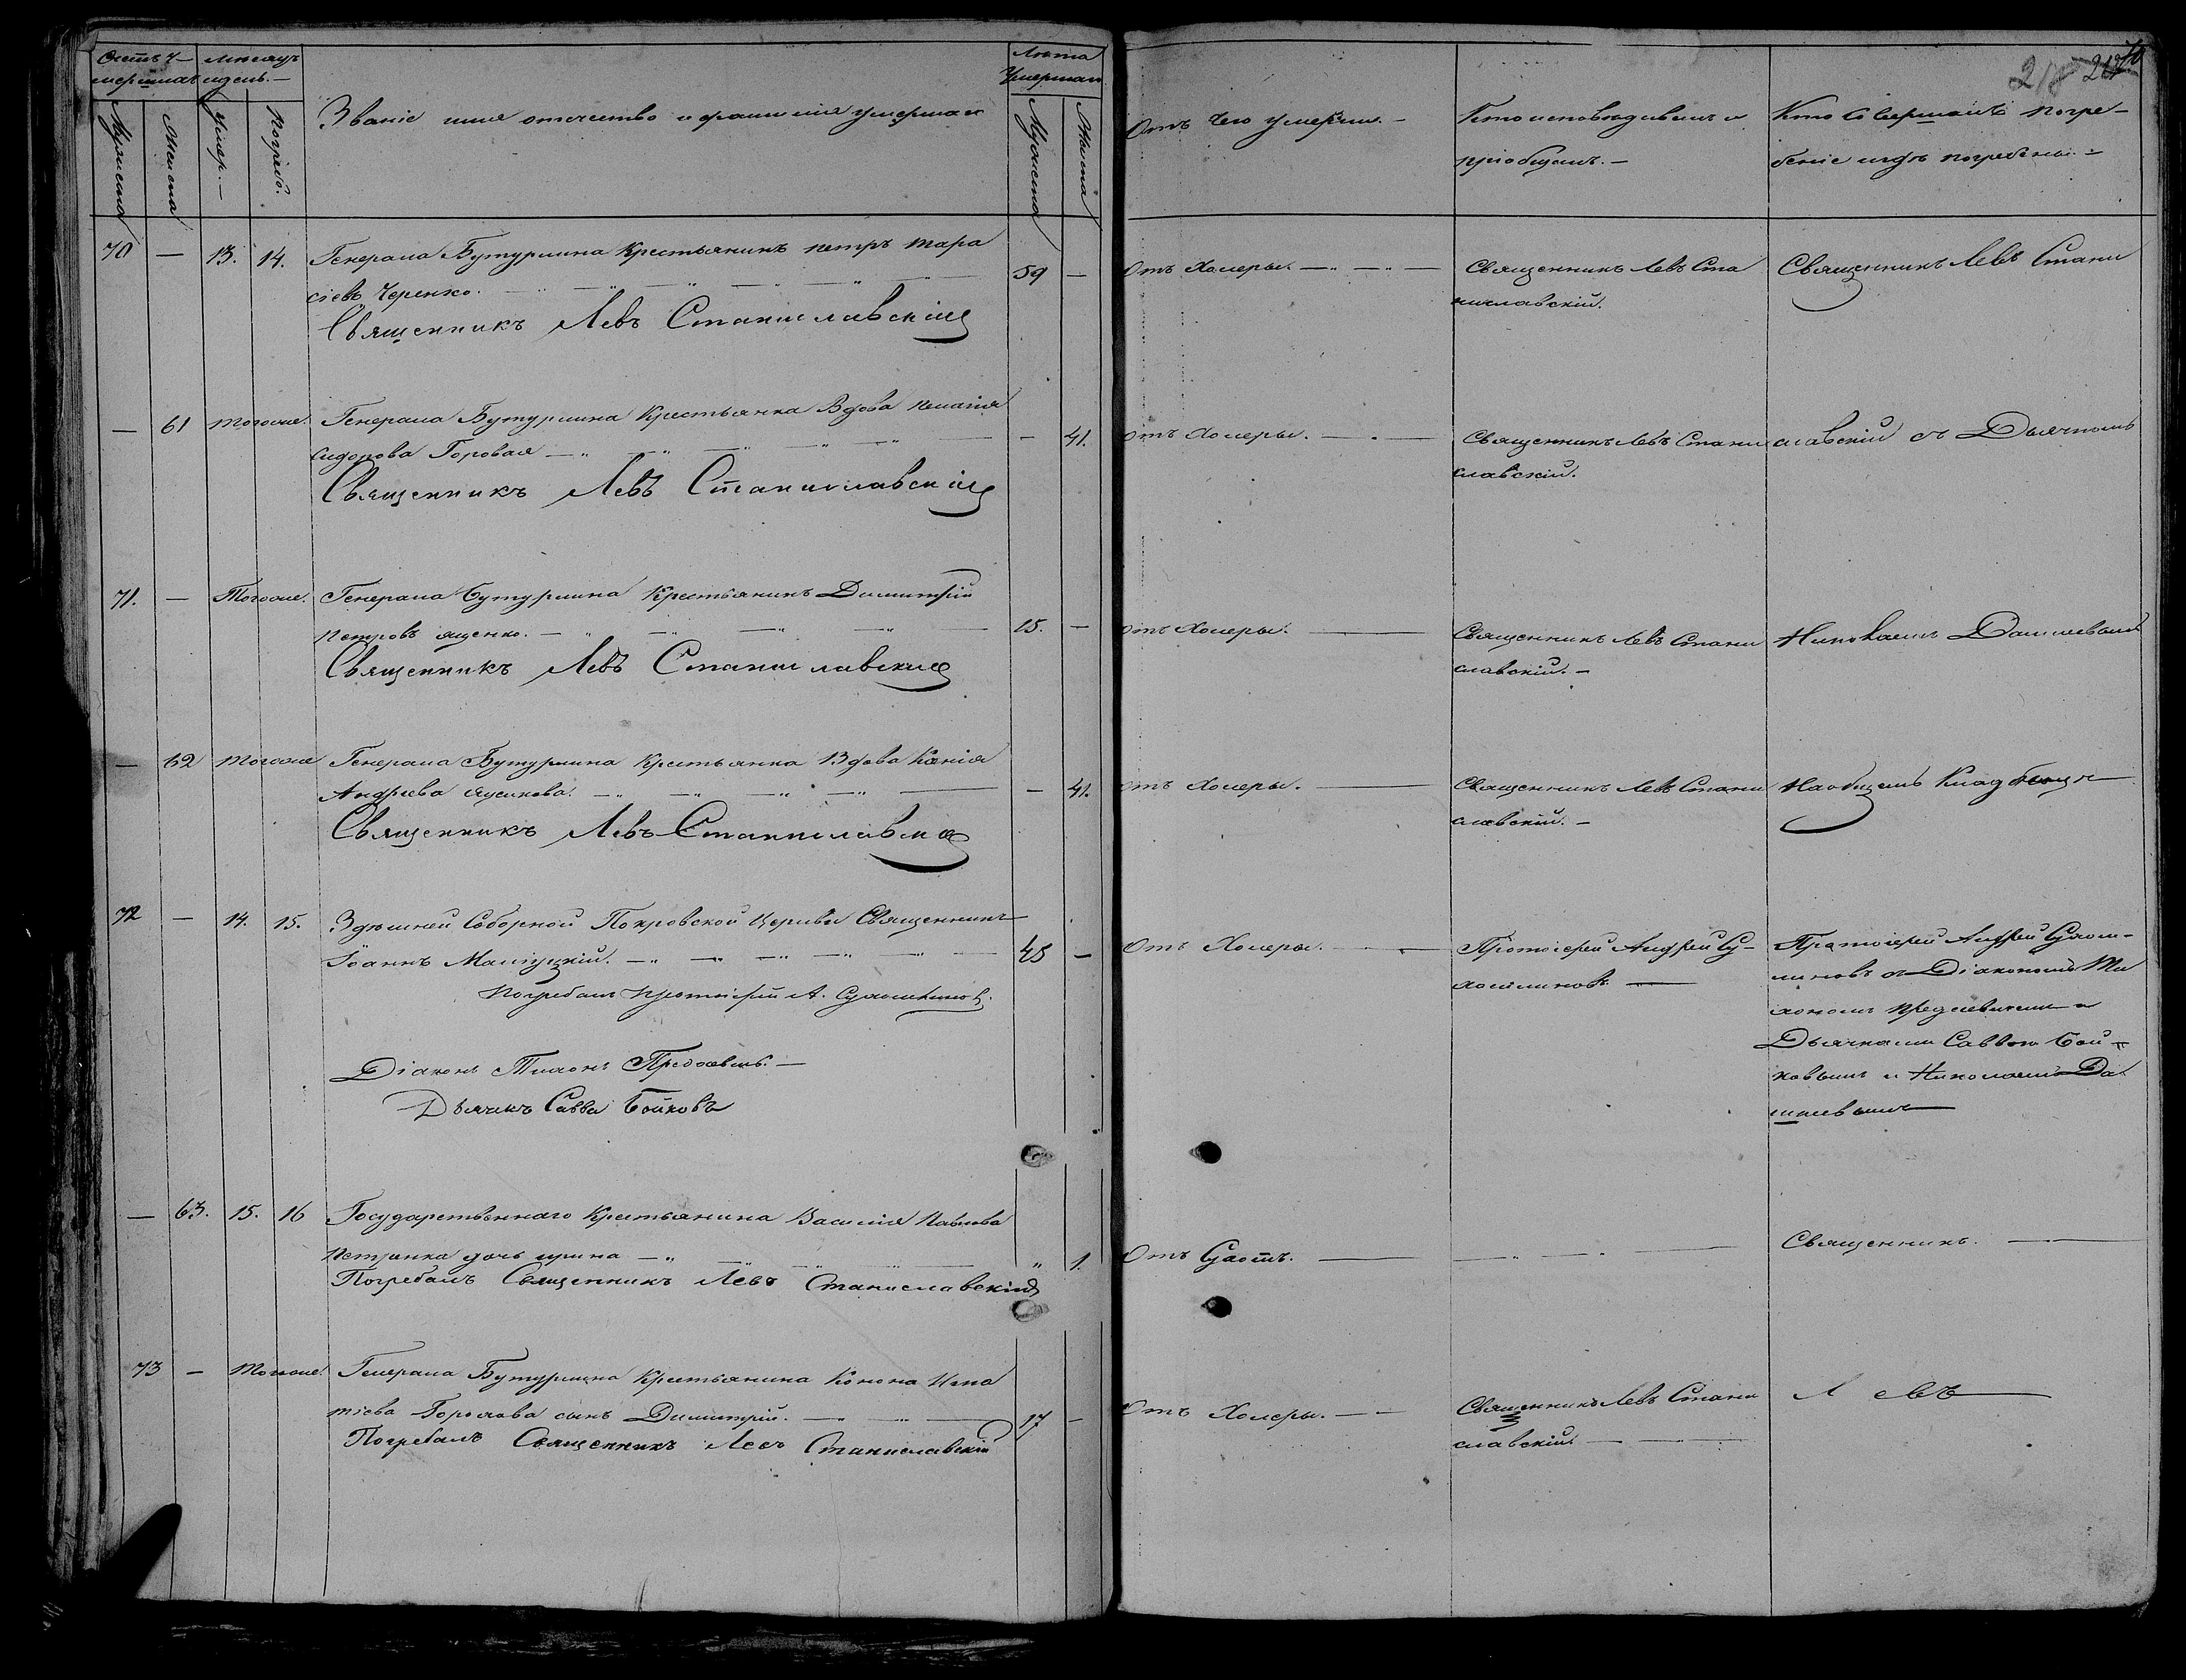 Счетъ у-
мершихъ
Мѣсяцъ
и день.-
Лѣта
Умершаго
Мужеска
Женска
Умер.-
Погреб.
Званіе имя отечество и фамилія умершаго
Мужеска
Женска
Отъ чего умерли.-
Кто исповѣдывалъ и
пріобщалъ.-
Кто совершалъ погре-
беніе и гдѣ погребены.-
70 — 13. 14. Генерала Бутурлина Крестьянинъ петръ тара
сіевъ Черенко. 59 —
Священникъ Левъ Станиславскій
Отъ Холеры.
Священникъ Левъ Ста
ниславскій.
Священникъ Левъ Стани
— 61 Тогоже. Генерала Бутурлина Крестьянка Вдова пелагія
сидорова Горовая — 41.
Священникъ Левъ Станиславскій
отъ Холеры.
Священникъ Левъ Стани
славскій.
славскій съ Дьячкомъ
71. — Тогоже. Генерала Бутурлина Крестьянинъ Димитрій
петровъ ященко. 15. —
Священникъ Левъ Станиславскій
отъ Холеры.
Священникъ Левъ Стани
славскій.-
Николаемъ
— 62 Тогоже Генерала Бутурлина Крестьянка Вдова
Андреева — 41.
Священникъ Левъ Станиславскій
отъ Холеры.
Священникъ Левъ Стани
славскій.-
На общемъ Кладбищѣ
72 — 14. 15. Здѣшней Соборной Покровской Церкви Священникъ
Іоаннъ 45 —
Погребалъ Протоіерей А.
Діаконъ Тихонъ
Дьячекъ Савва Бойковъ
Отъ Холеры.
Протоіерей Андрей Су-
Протоіерей Андрей
съ Діакономъ Ти
хономъ и
Дьячками Саввою Бой-
ковымъ и Николаемъ Да
— 63. 15. 16 Государственнаго Крестьянина Василія Павлова
Петренка дочь ирина „ 1.
Погребалъ Священникъ Левъ Станиславскій
Отъ
Священникъ.
73 — Тогоже. Генерала Бутурлина Крестьянина Конона Игна
тіева сынъ Димитрій. 17 —
Погребалъ Священникъ Левъ Станиславскій
Отъ Холеры.
Священникъ Левъ Стани
славскій
Левъ